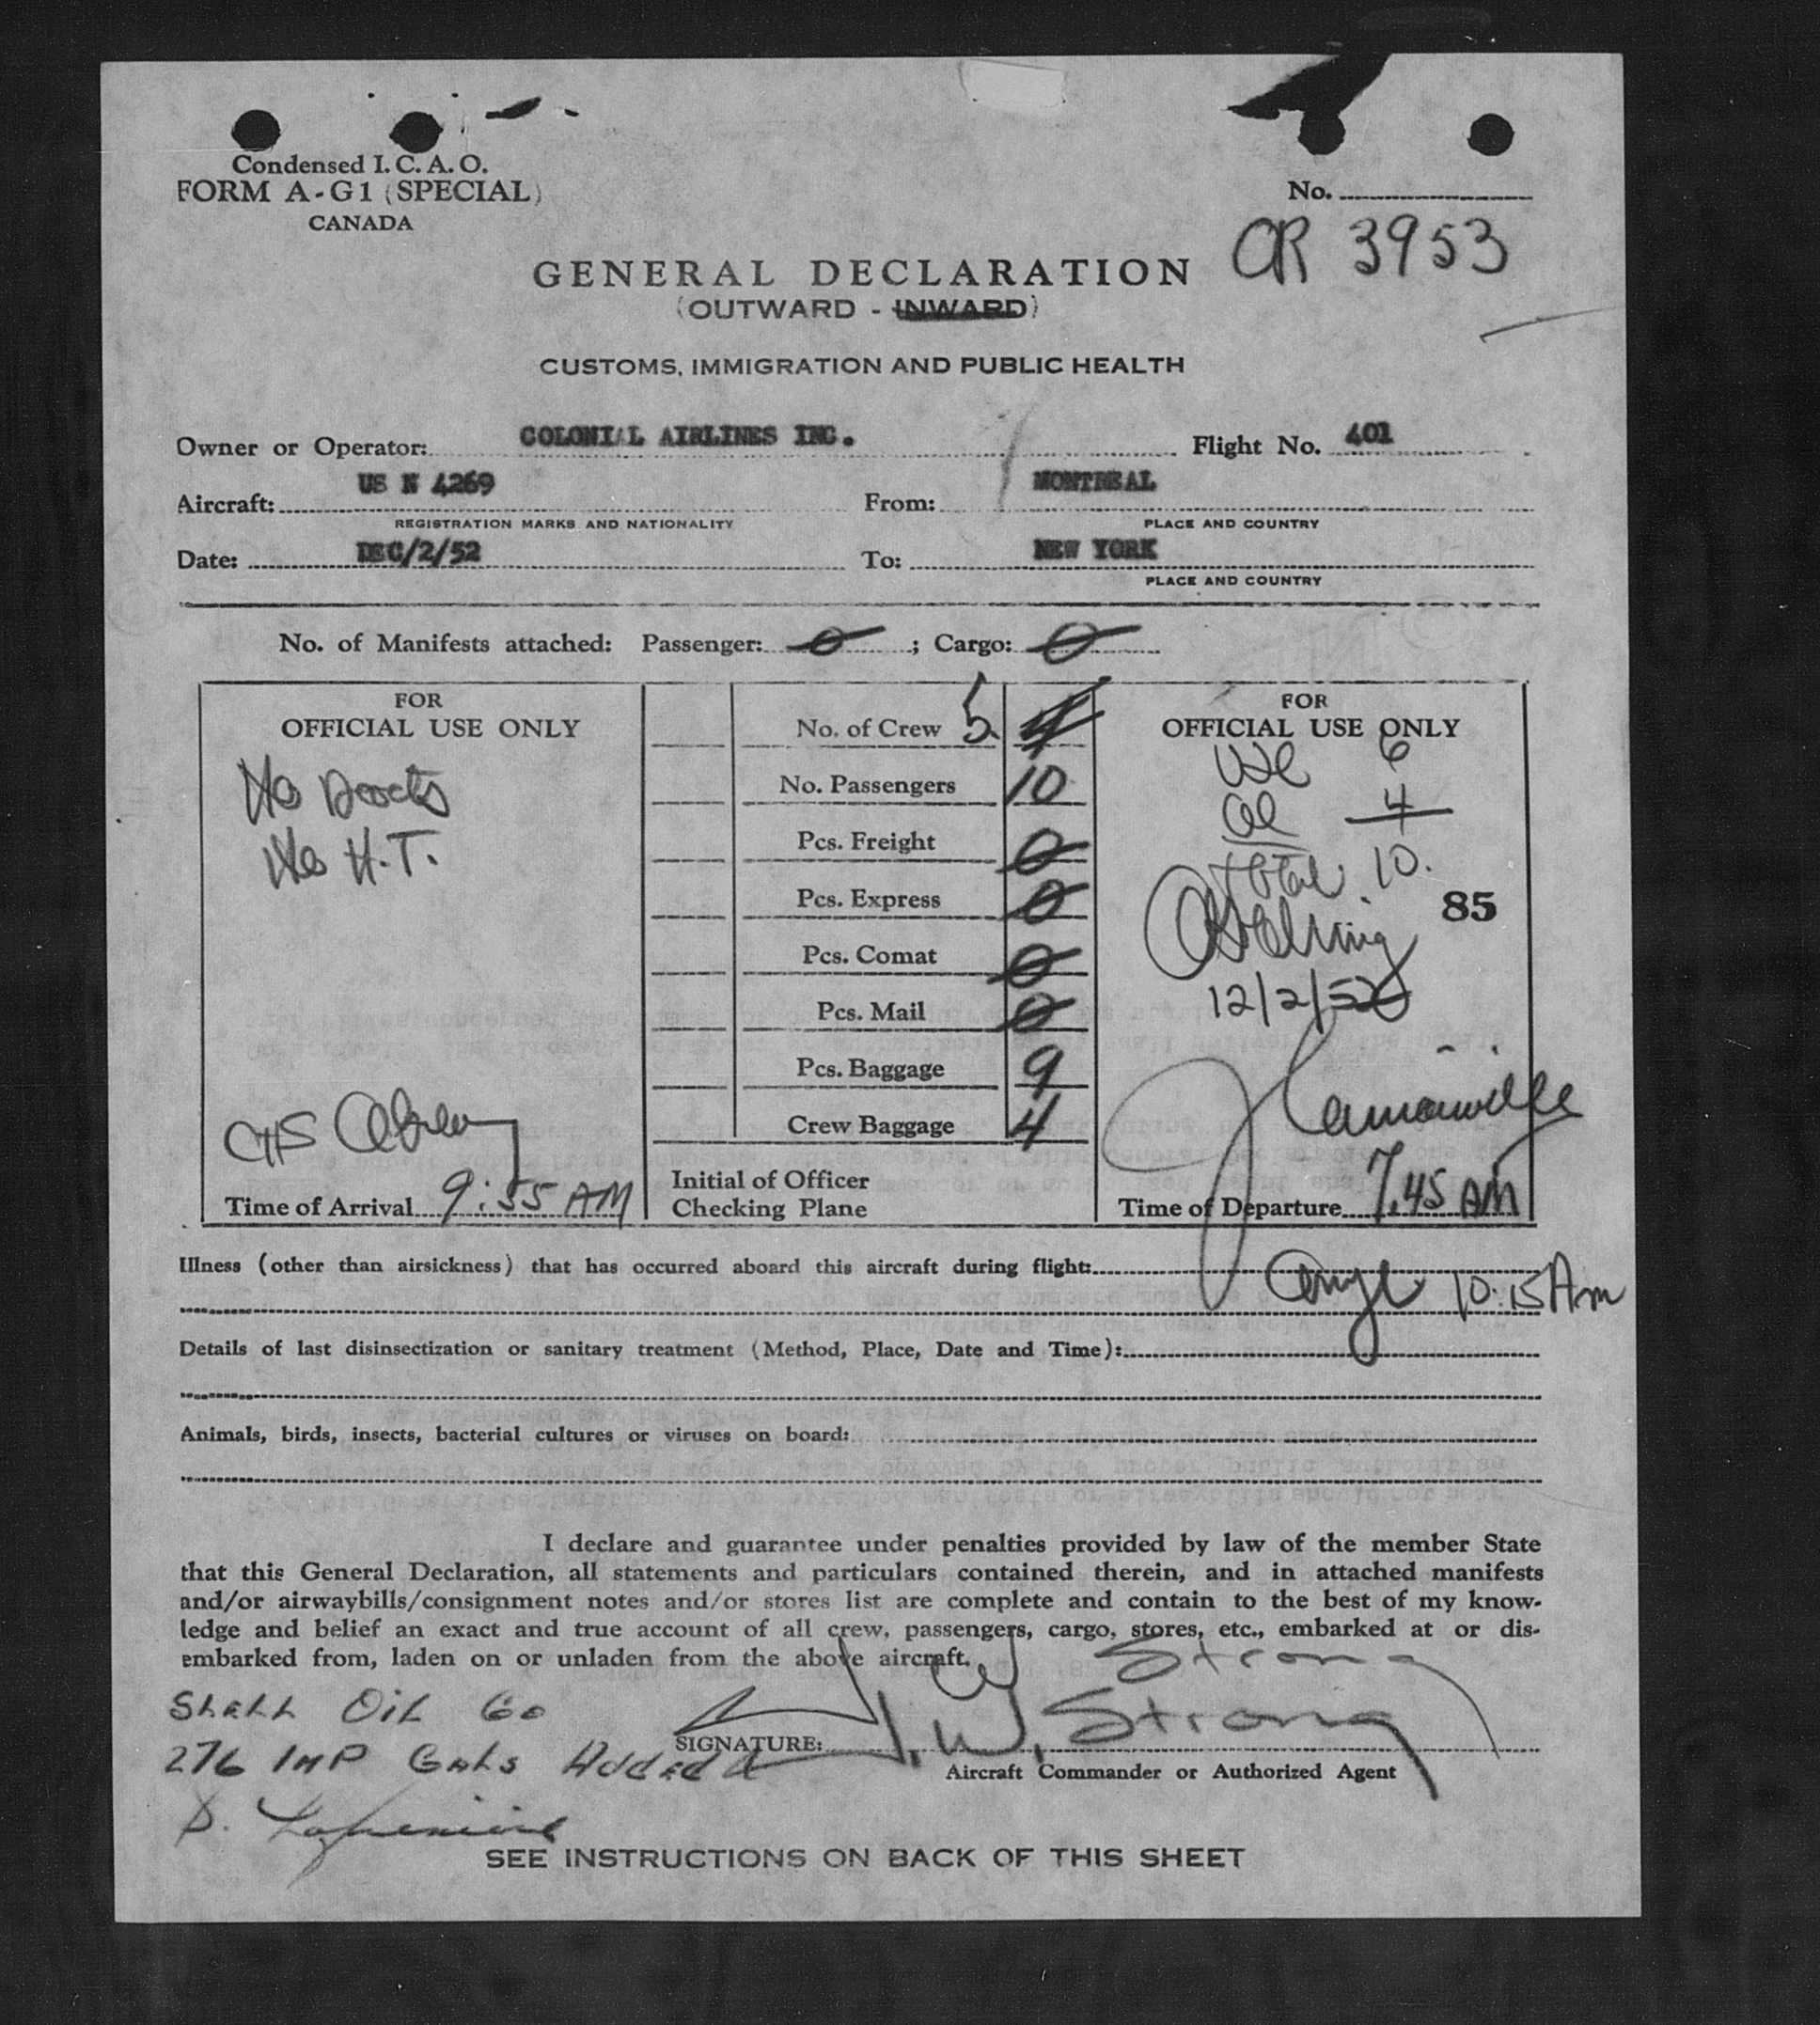 Condensed I. C. A. O.
FORM A-G1 (SPECIAL)
CANADA
No.
CR 3953
GENERAL DECLARATION
(OUTWARD - INWARD)
CUSTOMS, IMMIGRATION AND PUBLIC HEALTH
Owner or Operator: COLONIAL AIRLINES INC. Flight No. 401
Aircraft: US N 4269 From: MONTREAL
REGISTRATION MARKS AND NATIONALITY PLACE AND COUNTRY
Date: DEC/2/52 To: NEW YORK
PLACE AND COUNTRY
No. of Manifests attached: Passenger: 0 ; Cargo: 0
FOR
OFFICIAL USE ONLY
No
No H.T.
9:55 AM
Time of Arrival
No. of Crew 5 4
No. Passengers 10
Pcs. Freight 0
Pcs. Express 0
Pcs. Comat 0
Pcs. Mail 0
Pcs. Baggage 9
Crew Baggage 4
Initial of Officer
Checking Plane
FOR
OFFICIAL USE ONLY
6
4
total 10.
85
12/2/52
Time of Departure 7.45 AM
Illness (other than airsickness) that has occurred aboard this aircraft during flight:
10:15 Am
Details of last disinsectization or sanitary treatment (Method, Place, Date and Time):
Animals, birds, insects, bacterial cultures or viruses on board:
I declare and guarantee under penalties provided by law of the member State
that this General Declaration, all statements and particulars contained therein, and in attached manifests
and/or airwaybills/consignment notes and/or stores list are complete and contain to the best of my know-
ledge and belief an exact and true account of all crew, passengers, cargo, stores, etc., embarked at or dis-
embarked from, laden on or unladen from the above aircraft.
Strong
Shell Oil Co
SIGNATURE: J. W. Strong
276 IMP Gals Added
Aircraft Commander or Authorized Agent
SEE INSTRUCTIONS ON BACK OF THIS SHEET